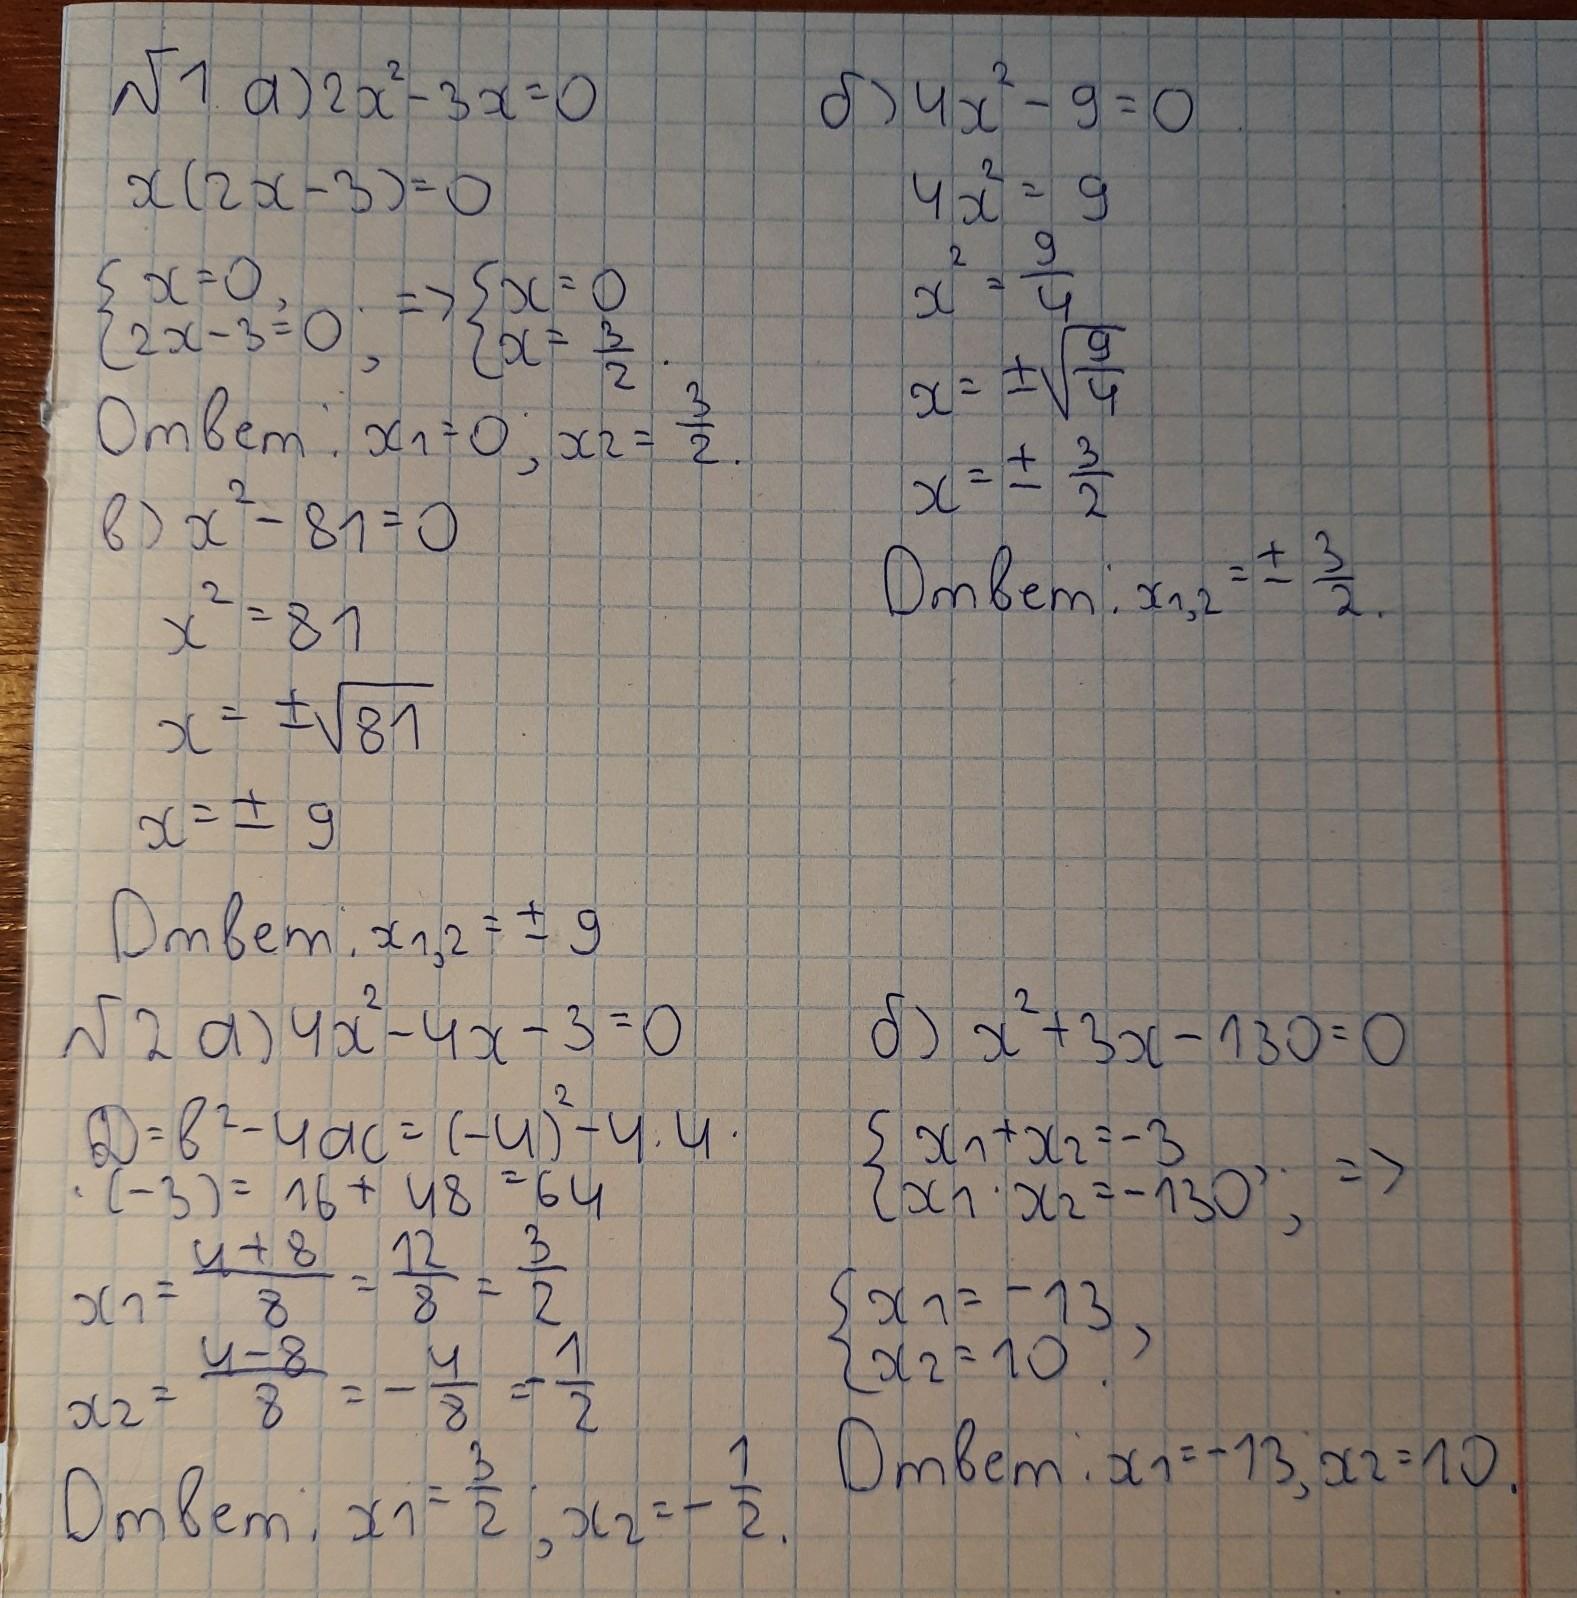 №1 а) 2x² - 3x = 0
x(2x - 3) = 0
{ x = 0,
{ 2x - 3 = 0, => { x = 0
{ x = 3/2.
Ответ: x1 = 0; x2 = 3/2.
б) 4x² - 9 = 0
4x² = 9
x² = 9/4
x = ±√(9/4)
x = ± 3/2
Ответ: x1,2 = ± 3/2.
в) x² - 81 = 0
x² = 81
x = ±√81
x = ± 9
Ответ: x1,2 = ± 9
№2 а) 4x² - 4x - 3 = 0
D = b² - 4ac = (-4)² - 4 · 4 ·
· (-3) = 16 + 48 = 64
x1 = (4+8)/8 = 12/8 = 3/2
x2 = (4-8)/8 = -4/8 = -1/2
Ответ: x1 = 3/2; x2 = -1/2.
б) x² + 3x - 130 = 0
{ x1 + x2 = -3
{ x1 · x2 = -130; =>
{ x1 = -13,
{ x2 = 10.
Ответ: x1 = -13, x2 = 10.